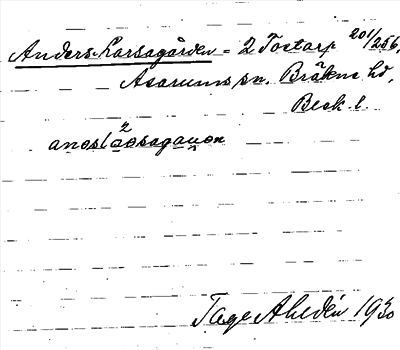 Anders Larsagården = 2 Tostarp 201/256,
Asarums sn. Bräkne hd,
Blek. l.
Tage Ahldén 1930